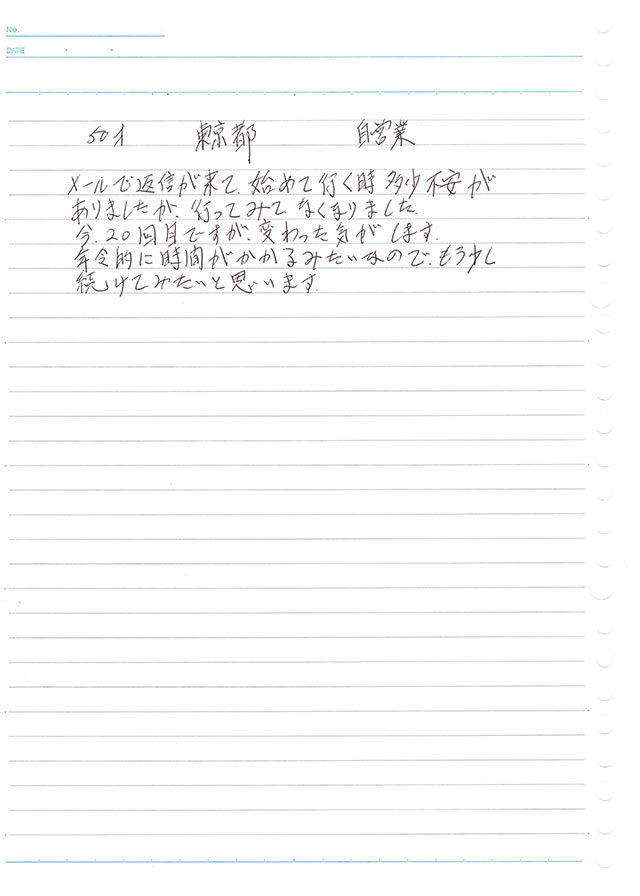 No.
DATE
50才 東京都 自営業
メールで返信が来て、始めて行く時多少不安が
ありましたが、行ってみてなくなりました。
今、20回目ですが、変わった気がします。
年令的に時間がかかるみたいなので、もう少し
続けてみたいと思います。